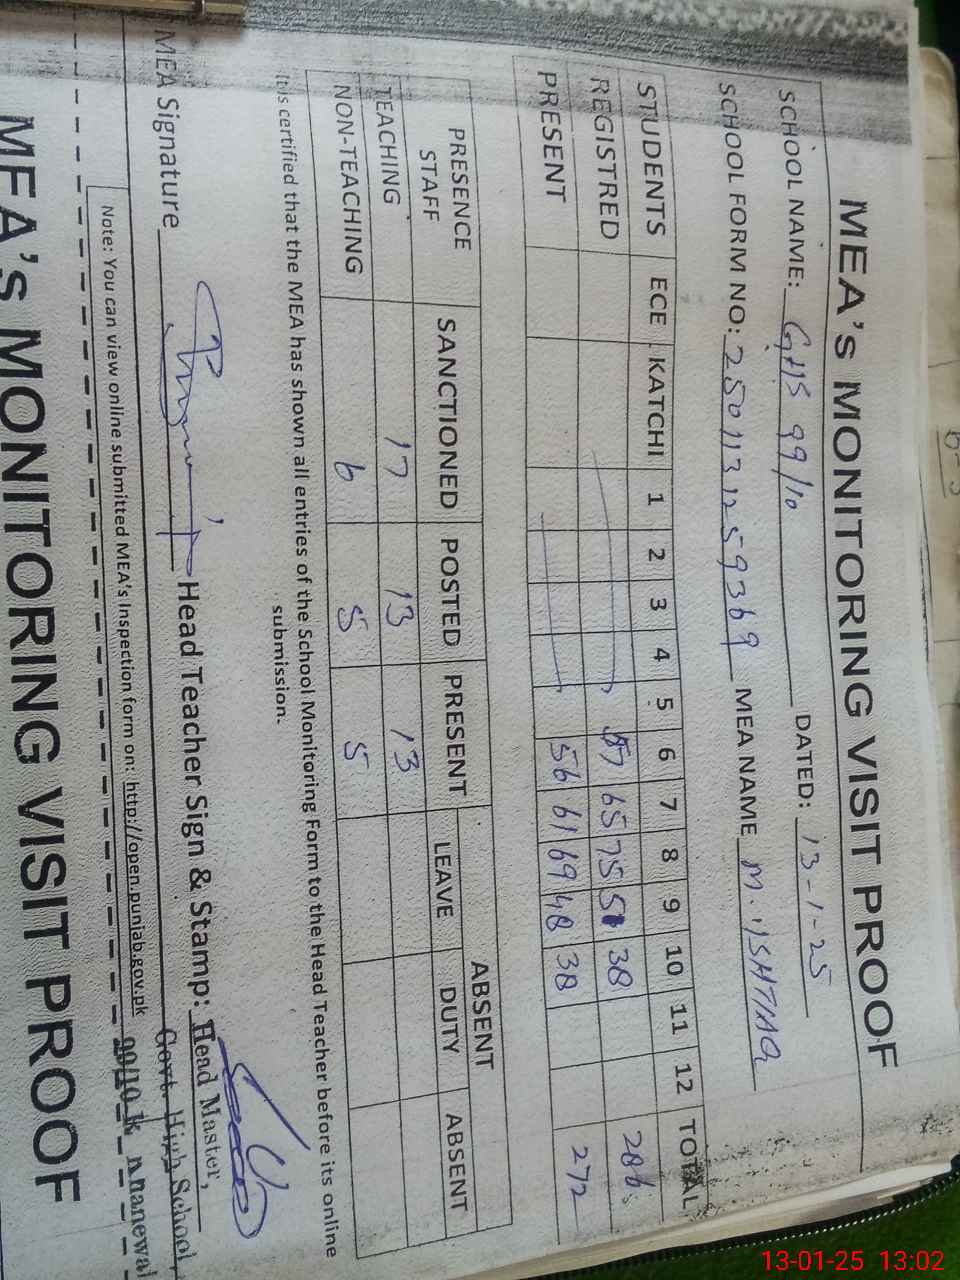 MEA's MONITORING VISIT PROOF
SCHOOL NAME: GHS 99/10 DATED: 13-1-25
SCHOOL FORM NO: 2501131259369 MEA NAME M. ISHTIAQ
STUDENTS ECE KATCHI 1 2 3 4 5 6 7 8 9 10 11 12 TOTAL
REGISTRED 57 65 75 51 38 286
PRESENT 56 61 69 48 38 272
PRESENCE STAFF SANCTIONED POSTED PRESENT ABSENT
LEAVE DUTY ABSENT
TEACHING 17 13 13
NON-TEACHING 6 5 5
It is certified that the MEA has shown all entries of the School Monitoring Form to the Head Teacher before its online
submission.
MEA Signature Head Teacher Sign & Stamp: Head Master,
Govt. High School,
Note: You can view online submitted MEA's Inspection form on: http://open.punjab.gov.pk
99/10
MEA's MONITORING VISIT PROOF
13-01-25 13:02